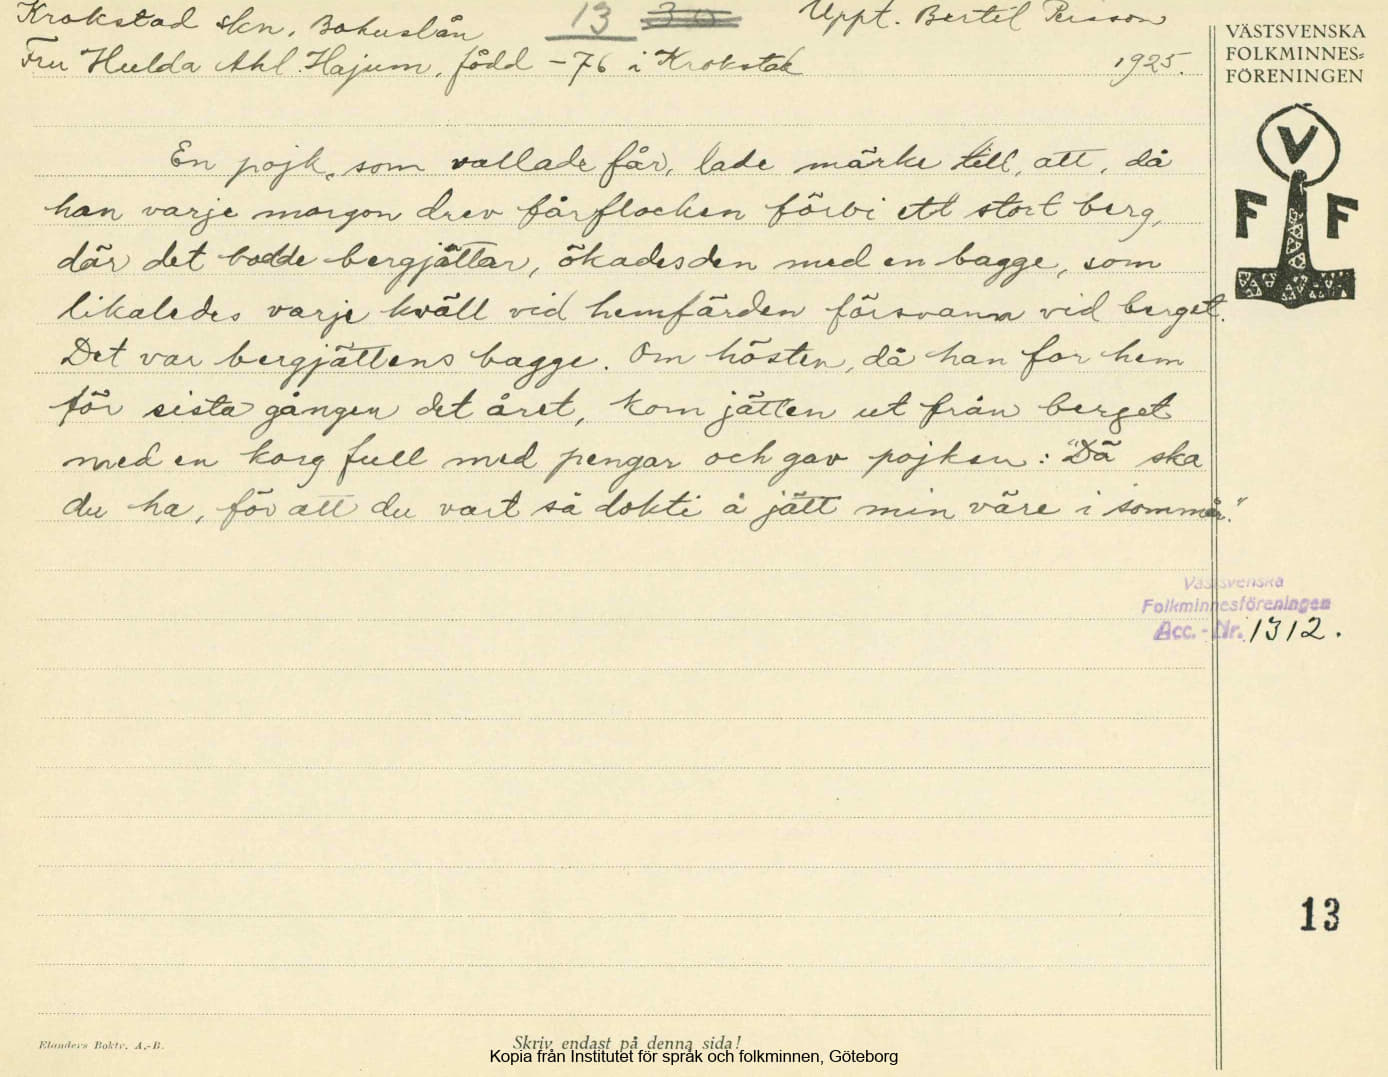 Krokstad skn, Bohuslän 13 30 Uppt. Bertil Persson
Fru Hulda Ahl. Hajum, född -76 i Krokstad 1925.
VÄSTSVENSKA
FOLKMINNES=
FÖRENINGEN
V
F F
En pojk, som vallade får, lade märke till, att, då
han varje morgon drev fårflocken förbi ett stort berg,
där det bodde bergjättar, ökades den med en bagge, som
likaledes varje kväll vid hemfärden försvann vid berget.
Det var bergjättens bagge. Om hösten, då han for hem
för sista gången det året, kom jätten ut från berget
med en korg full med pengar och gav pojken: "Dä ska
du ha, för att du vart så dokti å jätt min väre i sommår."
Västsvenska
Folkminnesföreningen
Acc.-Nr. 1312.
13
Elanders Boktr. A.-B.
Skriv endast på denna sida!
Kopia från Institutet för språk och folkminnen, Göteborg